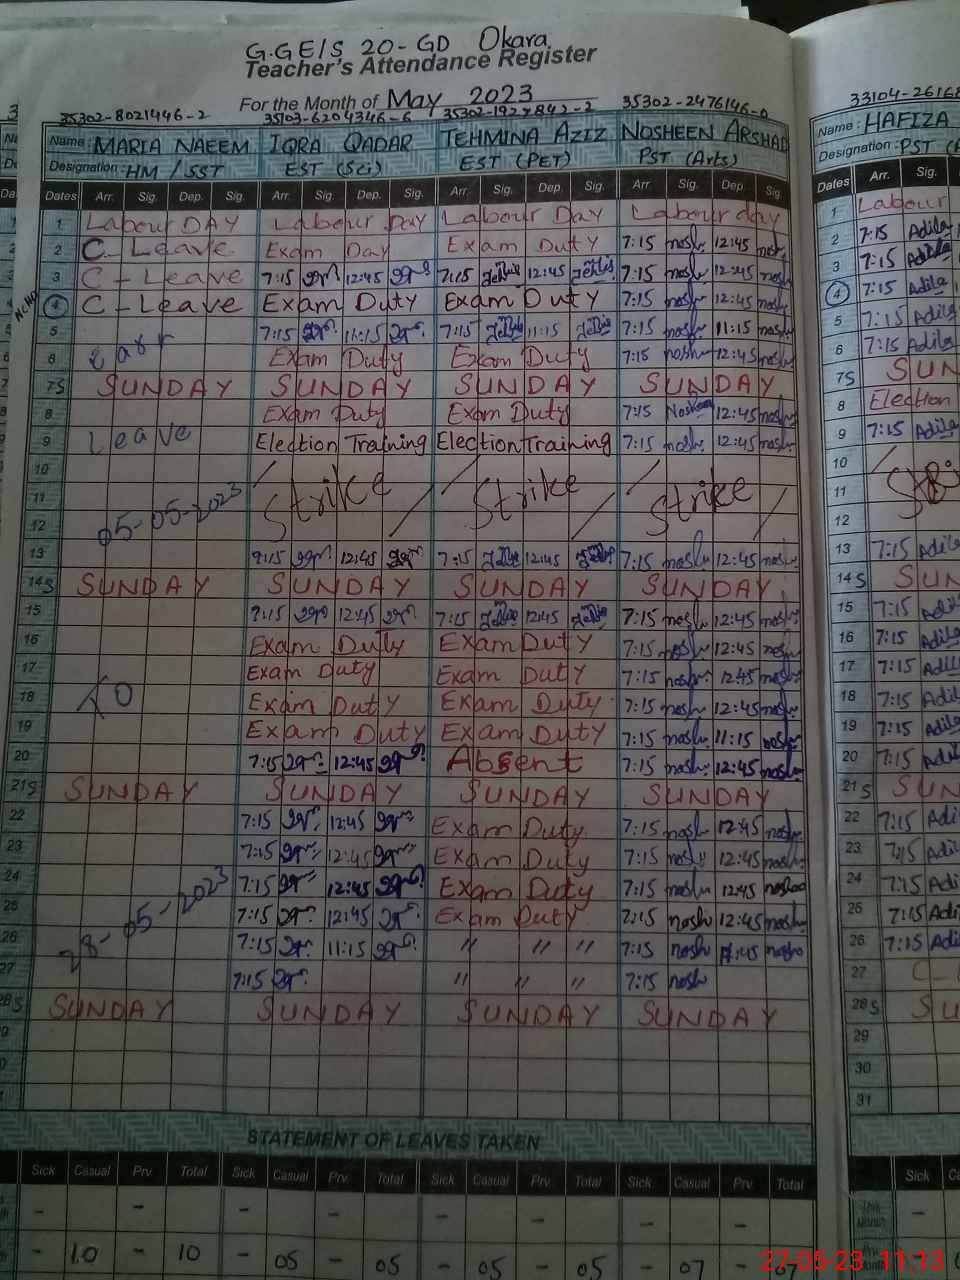 G.GE/S 20-GD Okara
Teacher's Attendance Register
For the Month of May 2023
35302-8021446-2 35103-6204346-6 35302-2476146-0 33104-2616
Name: MARIA NAEEM IQRA QADAR TEHMINA AZIZ NOSHEEN ARSHAD Name: HAFIZA
Designation: HM / SST EST (Sci) EST (PET) PST (Arts) Designation: PST
Dates Arr. Sig. Dep. Sig. Arr. Sig. Dep. Sig. Arr. Sig. Dep. Sig. Arr. Sig. Dep. Sig. Dates Arr. Sig.
1 Labour DAY Labour Day Labour Day Labour day 1 Labour
2 C-Leave Exam Day Exam Duty 7:15 nosh 12:45 nosh 2 7:15 Adila
3 C-Leave 7:15 12:45 7:15 12:45 7:15 nosh 12:45 nosh 3 7:15 Adila
4 C-Leave Exam Duty Exam Duty 7:15 nosh 12:45 nosh 4 7:15 Adila
5 7:15 11:15 7:15 11:15 7:15 nosh 11:15 nosh 5 7:15 Adila
6 Exam Duty Exam Duty 7:15 nosh 12:45 nosh 6 7:15 Adila
7S SUNDAY SUNDAY SUNDAY SUNDAY 7S SUN
8 Exam Duty Exam Duty 7:15 Nosheen 12:45 nosh 8 Election
9 Leave Election Training Election Training 7:15 nosh 12:45 nosh 9 7:15 Adila
10 10
11 Strike Strike Strike 11
12 05-05-2023 12
13 7:15 12:45 7:15 12:45 7:15 nosh 12:45 nosh 13 7:15 Adila
14S SUNDAY SUNDAY SUNDAY SUNDAY 14S SUN
15 7:15 12:45 7:15 12:45 7:15 nosh 12:45 nosh 15 7:15 Adila
16 Exam Duty Exam Duty 7:15 nosh 12:45 nosh 16 7:15 Adila
17 Exam Duty Exam Duty 7:15 nosh 12:45 nosh 17 7:15 Adila
18 To Exam Duty Exam Duty 7:15 nosh 12:45 nosh 18 7:15 Adila
19 Exam Duty Exam Duty 7:15 nosh 11:15 nosh 19 7:15 Adila
20 7:15 12:45 Absent 7:15 nosh 12:45 nosh 20 7:15 Adila
21S SUNDAY SUNDAY SUNDAY SUNDAY 21S SUN
22 7:15 12:45 Exam Duty 7:15 nosh 12:45 nosh 22 7:15 Adi
23 7:15 12:45 Exam Duty 7:15 nosh 12:45 nosh 23 7:15 Adil
24 7:15 12:45 Exam Duty 7:15 nosh 12:45 24 7:15 Adil
25 28-05-2023 7:15 12:45 Exam Duty 7:15 nosh 12:45 nosh 25 7:15 Adi
26 7:15 11:15 " " " 7:15 nosh 26 7:15 Adil
27 7:15 " " " 7:15 nosh 27 C-
28S SUNDAY SUNDAY SUNDAY SUNDAY 28S SU
29
30
31
STATEMENT OF LEAVES TAKEN
Sick Casual Prv. Total Sick Casual Prv. Total Sick Casual Prv. Total Sick Casual Prv. Total Sick
- - - - - - - - -
- 10 - 10 - 05 - 05 - 05 - 05 - 07 - 07
27-05-23 11:13